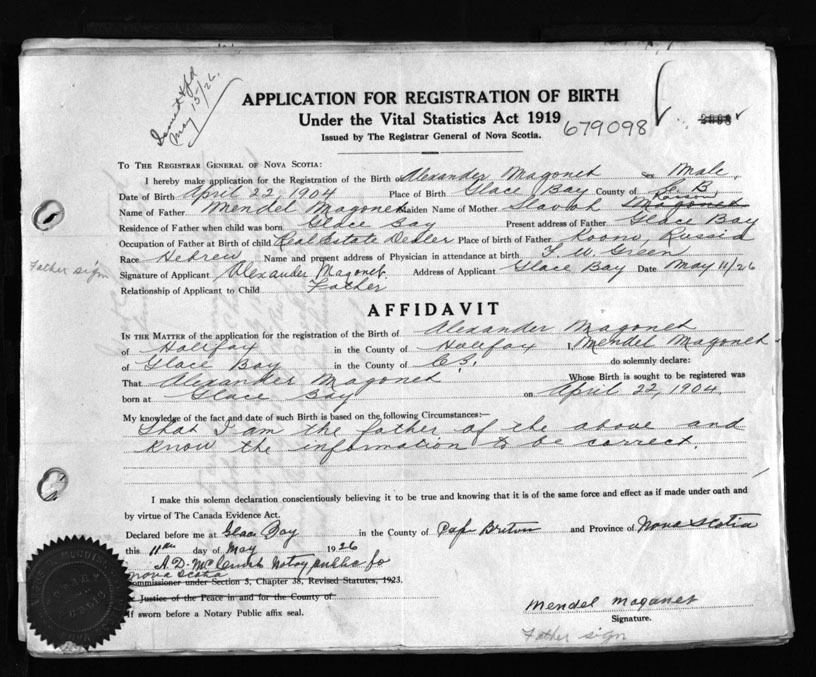 May 15/26.
APPLICATION FOR REGISTRATION OF BIRTH
Under the Vital Statistics Act 1919
Issued by The Registrar General of Nova Scotia.
679098
TO THE REGISTRAR GENERAL OF NOVA SCOTIA:
I hereby make application for the Registration of the Birth of Alexander Magonet sex Male.
Date of Birth April 22, 1904 Place of Birth Glace Bay County of C. B.
Name of Father Mendel Magonet Maiden Name of Mother Slavah
Residence of Father when child was born Glace Bay Present address of Father Glace Bay
Occupation of Father at Birth of child Real Estate Dealer Place of birth of Father Koono, Russia
Race Hebrew Name and present address of Physician in attendance at birth T. W. Green
Father sign
Signature of Applicant Alexander Magonet. Address of Applicant Glace Bay Date May 11/26
Relationship of Applicant to Child Father
AFFIDAVIT
IN THE MATTER of the application for the registration of the Birth of Alexander Magonet
of Halifax in the County of Halifax I, Mendel Magonet
of Glace Bay in the County of C.B. do solemnly declare:
That Alexander Magonet Whose Birth is sought to be registered was
born at Glace Bay on April 22, 1904
My knowledge of the fact and date of such Birth is based on the following Circumstances:—
That I am the father of the above and
know the information to be correct.
I make this solemn declaration conscientiously believing it to be true and knowing that it is of the same force and effect as if made under oath and
by virtue of The Canada Evidence Act.
Declared before me at Glace Bay in the County of Cape Breton and Province of Nova Scotia
this 11th day of May 1926
A. D. Notary public fo
Nova Scotia
Commissioner under Section 5, Chapter 38, Revised Statutes, 1923.
A Justice of the Peace in and for the County of
If sworn before a Notary Public affix seal.
Mendel Magonet
Signature.
Father sign